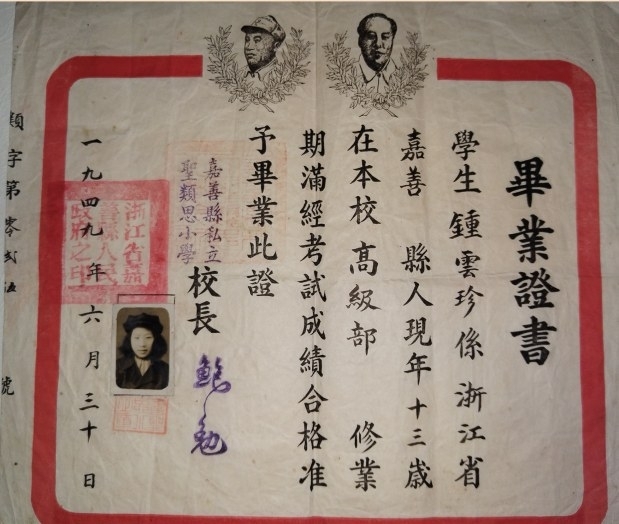 畢業證書
學生鍾雲珍係浙江省
嘉善 縣人現年十三歲
在本校高級部 修業
期滿經考試成績合格准
予畢業此證
嘉善縣私立
聖類思小學
校長 鮑勉
一九四九年六月三十日
浙江省嘉
善縣人民
政府之印
類字第零貳 號